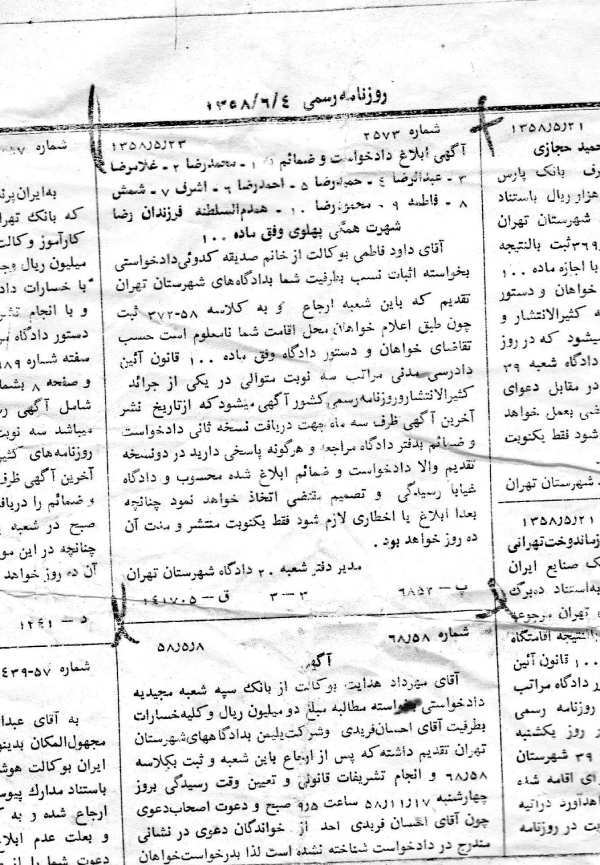 روزنامه رسمی ۱۳۵۸/۶/۴
شماره ۲۵۷۳ ۱۳۵۸/۵/۲۳
آگهی ابلاغ دادخواست و ضمائم به ۱- محمدرضا ۲- غلامرضا
۳- عبدالرضا ۴- حمیدرضا ۵- احمدرضا ۶- اشرف ۷- شمس
۸- فاطمه ۹- محمودرضا ۱۰- همدم‌السلطنه فرزندان رضا
شهرت همگی پهلوی وفق ماده ۱۰۰
آقای داود فاطمی بوکالت از خانم صدیقه کدوئی دادخواستی
بخواسته اثبات نسب بطرفیت شما بدادگاه‌های شهرستان تهران
تقدیم که باین شعبه ارجاع و به کلاسه ۵۸-۳۷۲ ثبت
چون طبق اعلام خواهان محل اقامت شما نامعلوم است حسب
تقاضای خواهان و دستور دادگاه وفق ماده ۱۰۰ قانون آئین
دادرسی مدنی مراتب سه نوبت متوالی در یکی از جرائد
کثیرالانتشار و روزنامه رسمی کشور آگهی میشود که از تاریخ نشر
آخرین آگهی ظرف سه ماه جهت دریافت نسخه ثانی دادخواست
و ضمائم بدفتر دادگاه مراجعه و هرگونه پاسخی دارید در دو نسخه
تقدیم والا دادخواست و ضمائم ابلاغ شده محسوب و دادگاه
غیابا رسیدگی و تصمیم مقتضی اتخاذ خواهد نمود چنانچه
بعدا ابلاغ یا اخطاری لازم شود فقط یکنوبت منتشر و مدت آن
ده روز خواهد بود.
مدیر دفتر شعبه ۲۰ دادگاه شهرستان تهران
پ-۶۸۵۲ ۳-۳ ق-۱۴۱۷۰۵
شماره ۶۸/۵۸ ۵۸/۵/۸
آگهی
آقای مهرداد هدایت بوکالت از بانک سپه شعبه مجیدیه
دادخواستی بخواسته مطالبه مبلغ دو میلیون ریال و کلیه خسارات
بطرفیت آقای احسان فریدی وشرکت پلیمن بدادگاههای شهرستان
تهران تقدیم داشته که پس از ارجاع باین شعبه و ثبت بکلاسه
۶۸/۵۸ و انجام تشریفات قانونی و تعیین وقت رسیدگی بروز
چهارشنبه ۵۸/۱۱/۱۷ ساعت ۹/۵ صبح و دعوت اصحاب دعوی
چون آقای احسان فریدی احد از خواندگان دعوی در نشانی
مندرج در دادخواست شناخته نشده است لذا بدرخواست خواهان
۱۳۵۸/۵/۲۱
حمید حجازی
بانک پارس
هزار ریال باستناد
شهرستان تهران
ثبت بالنتیجه
با اجازه ماده ۱۰۰
خواهان و دستور
کثیرالانتشار و
میشود که در روز
دادگاه شعبه ۳۹
در مقابل دعوای
بعمل خواهد
شود فقط یکنوبت
شهرستان تهران
۱۳۵۸/۵/۲۱
صنایع ایران
باستناد ده برگ
تهران مرجوعه
بالنتیجه اقامتگاه
۱۰۰ قانون آئین
دادگاه مراتب
روزنامه رسمی
روز یکشنبه
۳۹ شهرستان
اقامه شده
در روزنامه
شماره
به ایران
که بانک تهران
کارآموز وکالت
میلیون ریال
با خسارات
و با انجام
دستور دادگاه
سفته شماره
و صفحه ۸
شامل آگهی
میباشد سه نوبت
روزنامه‌های
آخرین آگهی ظرف
و ضمائم را
صبح در شعبه
چنانچه در این
آن ده روز خواهد
د-۱۲۴۱
شماره ۵۷-۴۳۹
به آقای
مجهول‌المکان
ایران بوکالت
باستناد مدارک
ارجاع شده و
و بعلت عدم
دعوت شما را از